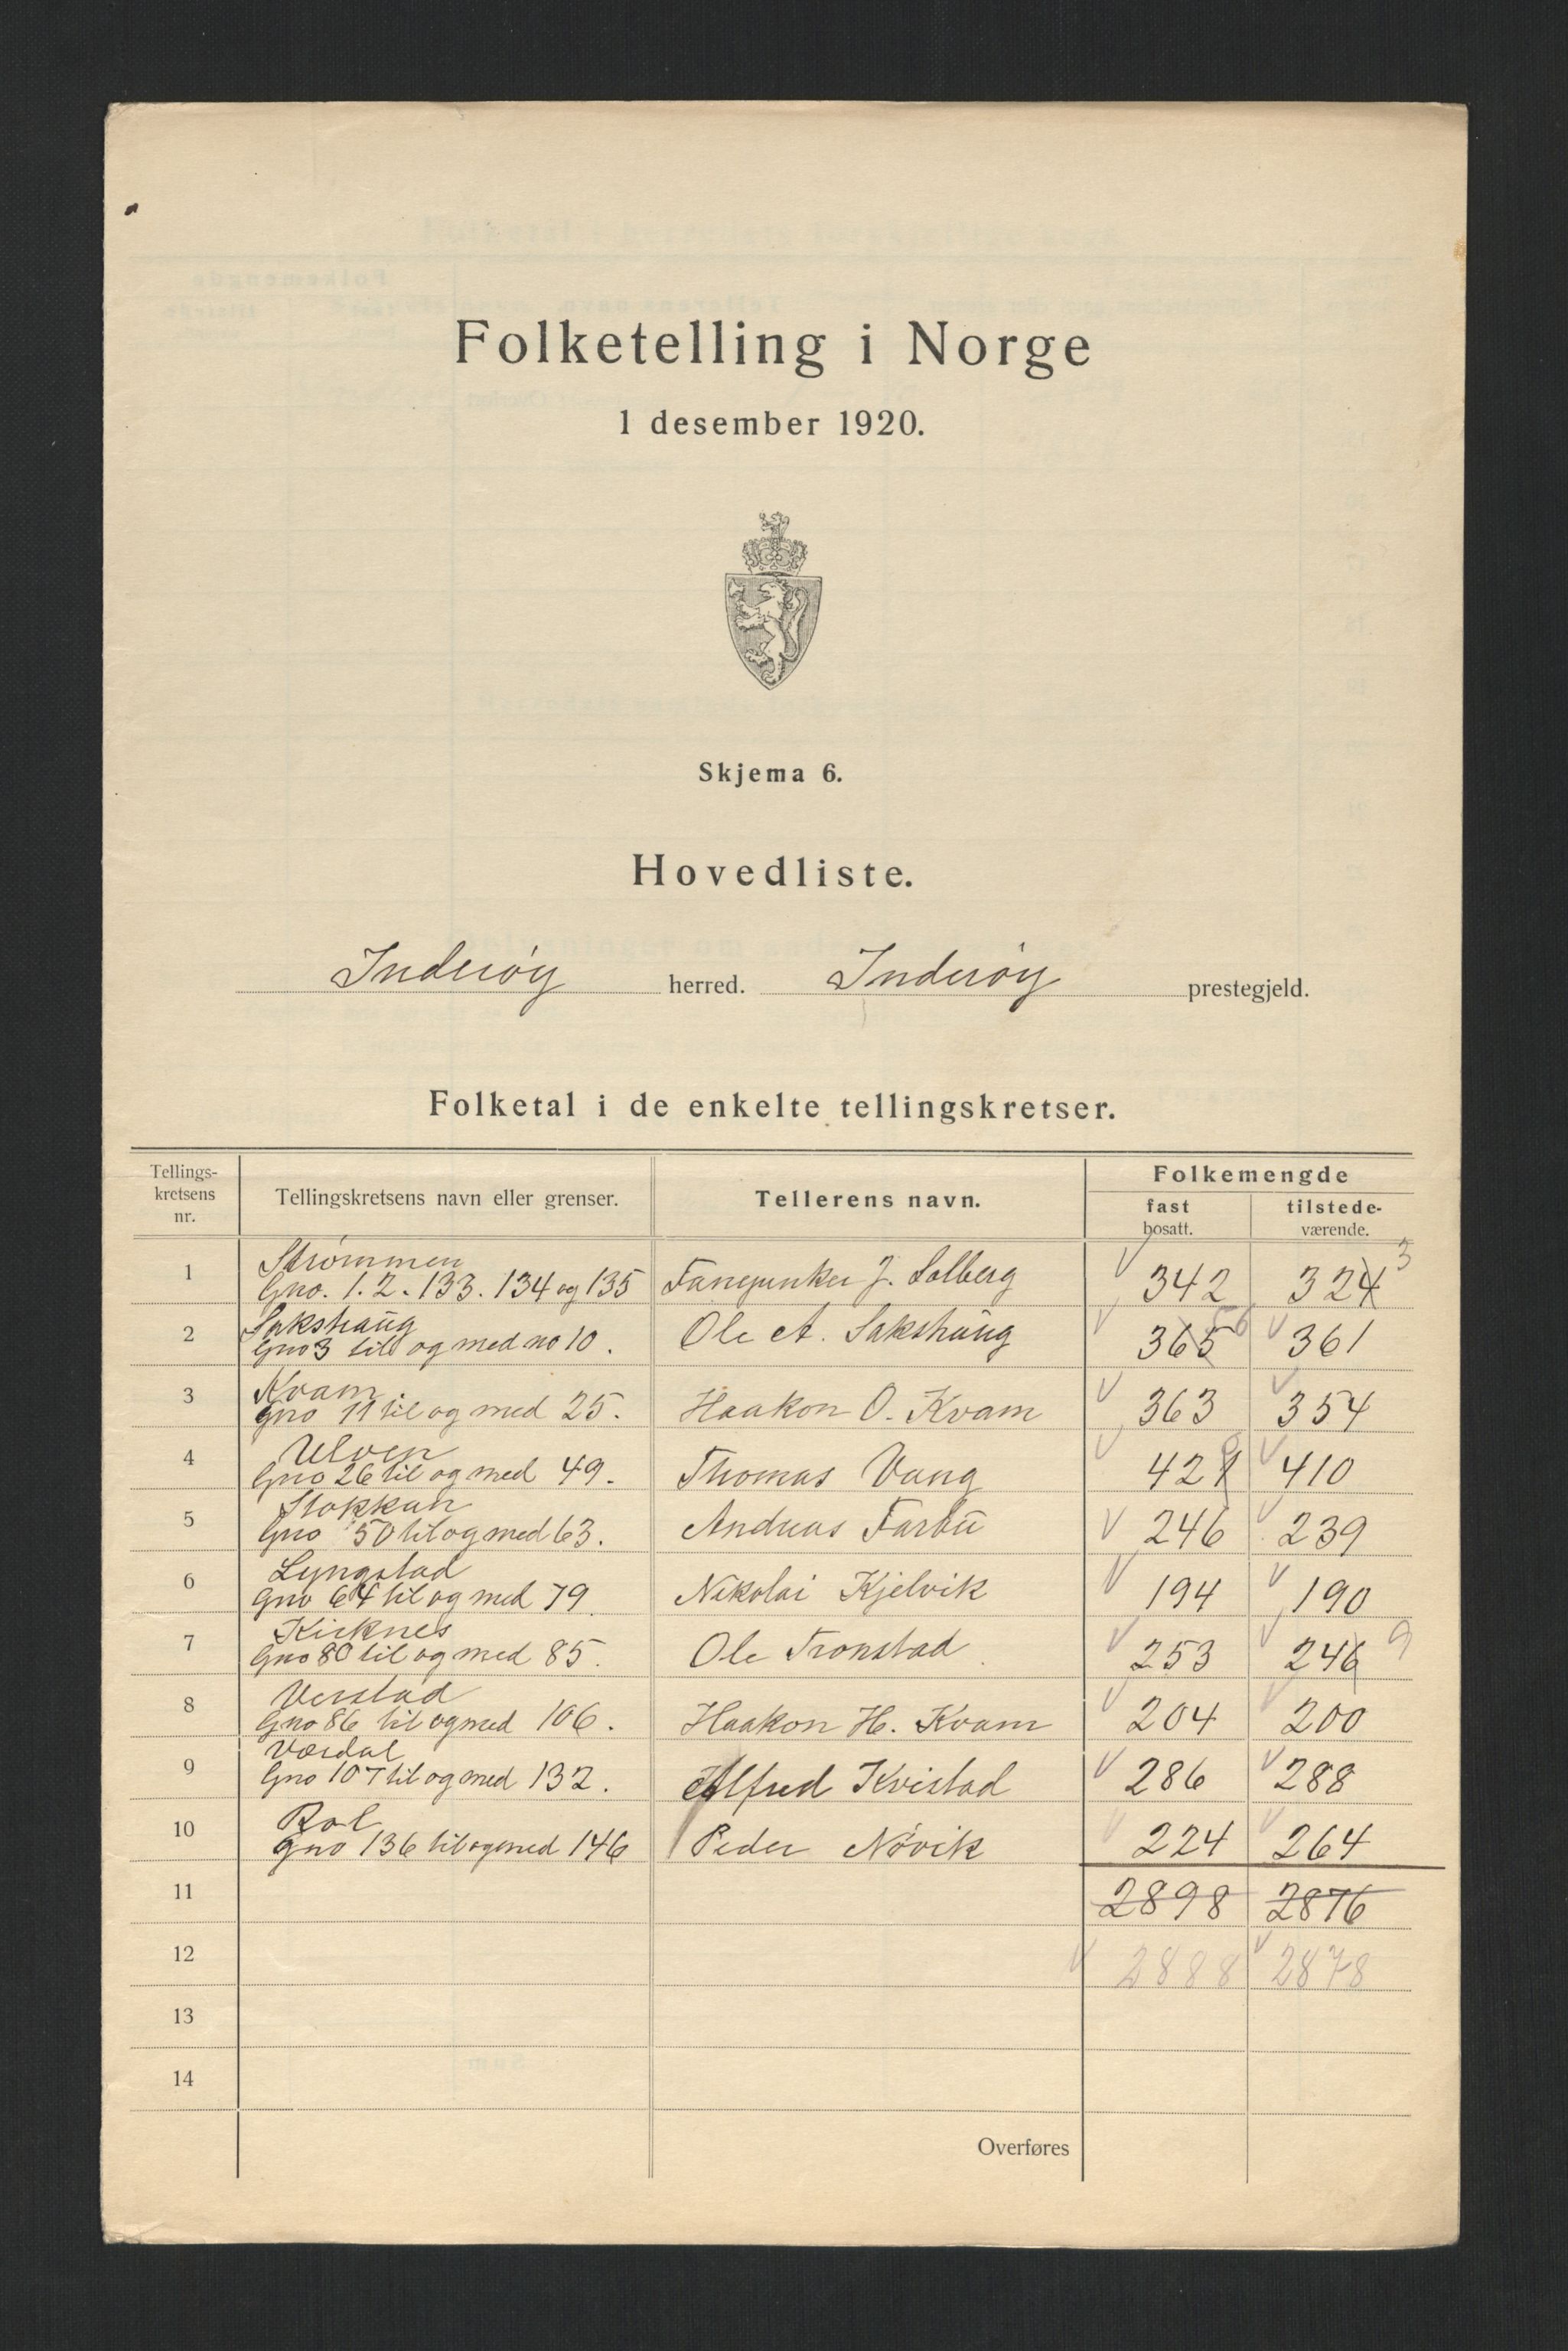 Folketelling i Norge
1 desember 1920.
Skjema 6.
Hovedliste.
Inderøy herred. Inderøy prestegjeld.
Folketal i de enkelte tellingskretser.
Tellings-
kretsens
nr.
Tellingskretsens navn eller grenser.
Tellerens navn.
Folkemengde
fast
bosatt.
tilstede-
værende.
1 Strømmen
Gno. 1. 2. 133. 134 og 135 J. Solberg 342 324 3
2 Sakshaug
Gno 3 til og med no 10. Ole A. Sakshaug 365 56 361
3 Kvam
Gno 11 til og med 25. Haakon O. Kvam 363 354
4 Ulven
Gno 26 til og med 49. Thomas Vang 421 410
5 Stokkan
Gno 50 til og med 63. Andreas Farbu 246 239
6 Lyngstad
Gno 64 til og med 79. Nikolai Kjelvik 194 190
7 Kirknes
Gno 80 til og med 85. Ole Tronstad 253 246 9
8 Verstad
Gno 86 til og med 106. Haakon H. Kvam 204 200
9 Værdal
Gno 107 til og med 132. Alfred Kvistad 286 288
10 Rol
Gno 136 til og med 146 Peder Nøvik 224 264
11 2898 2876
12 2888 2878
13
14
Overføres